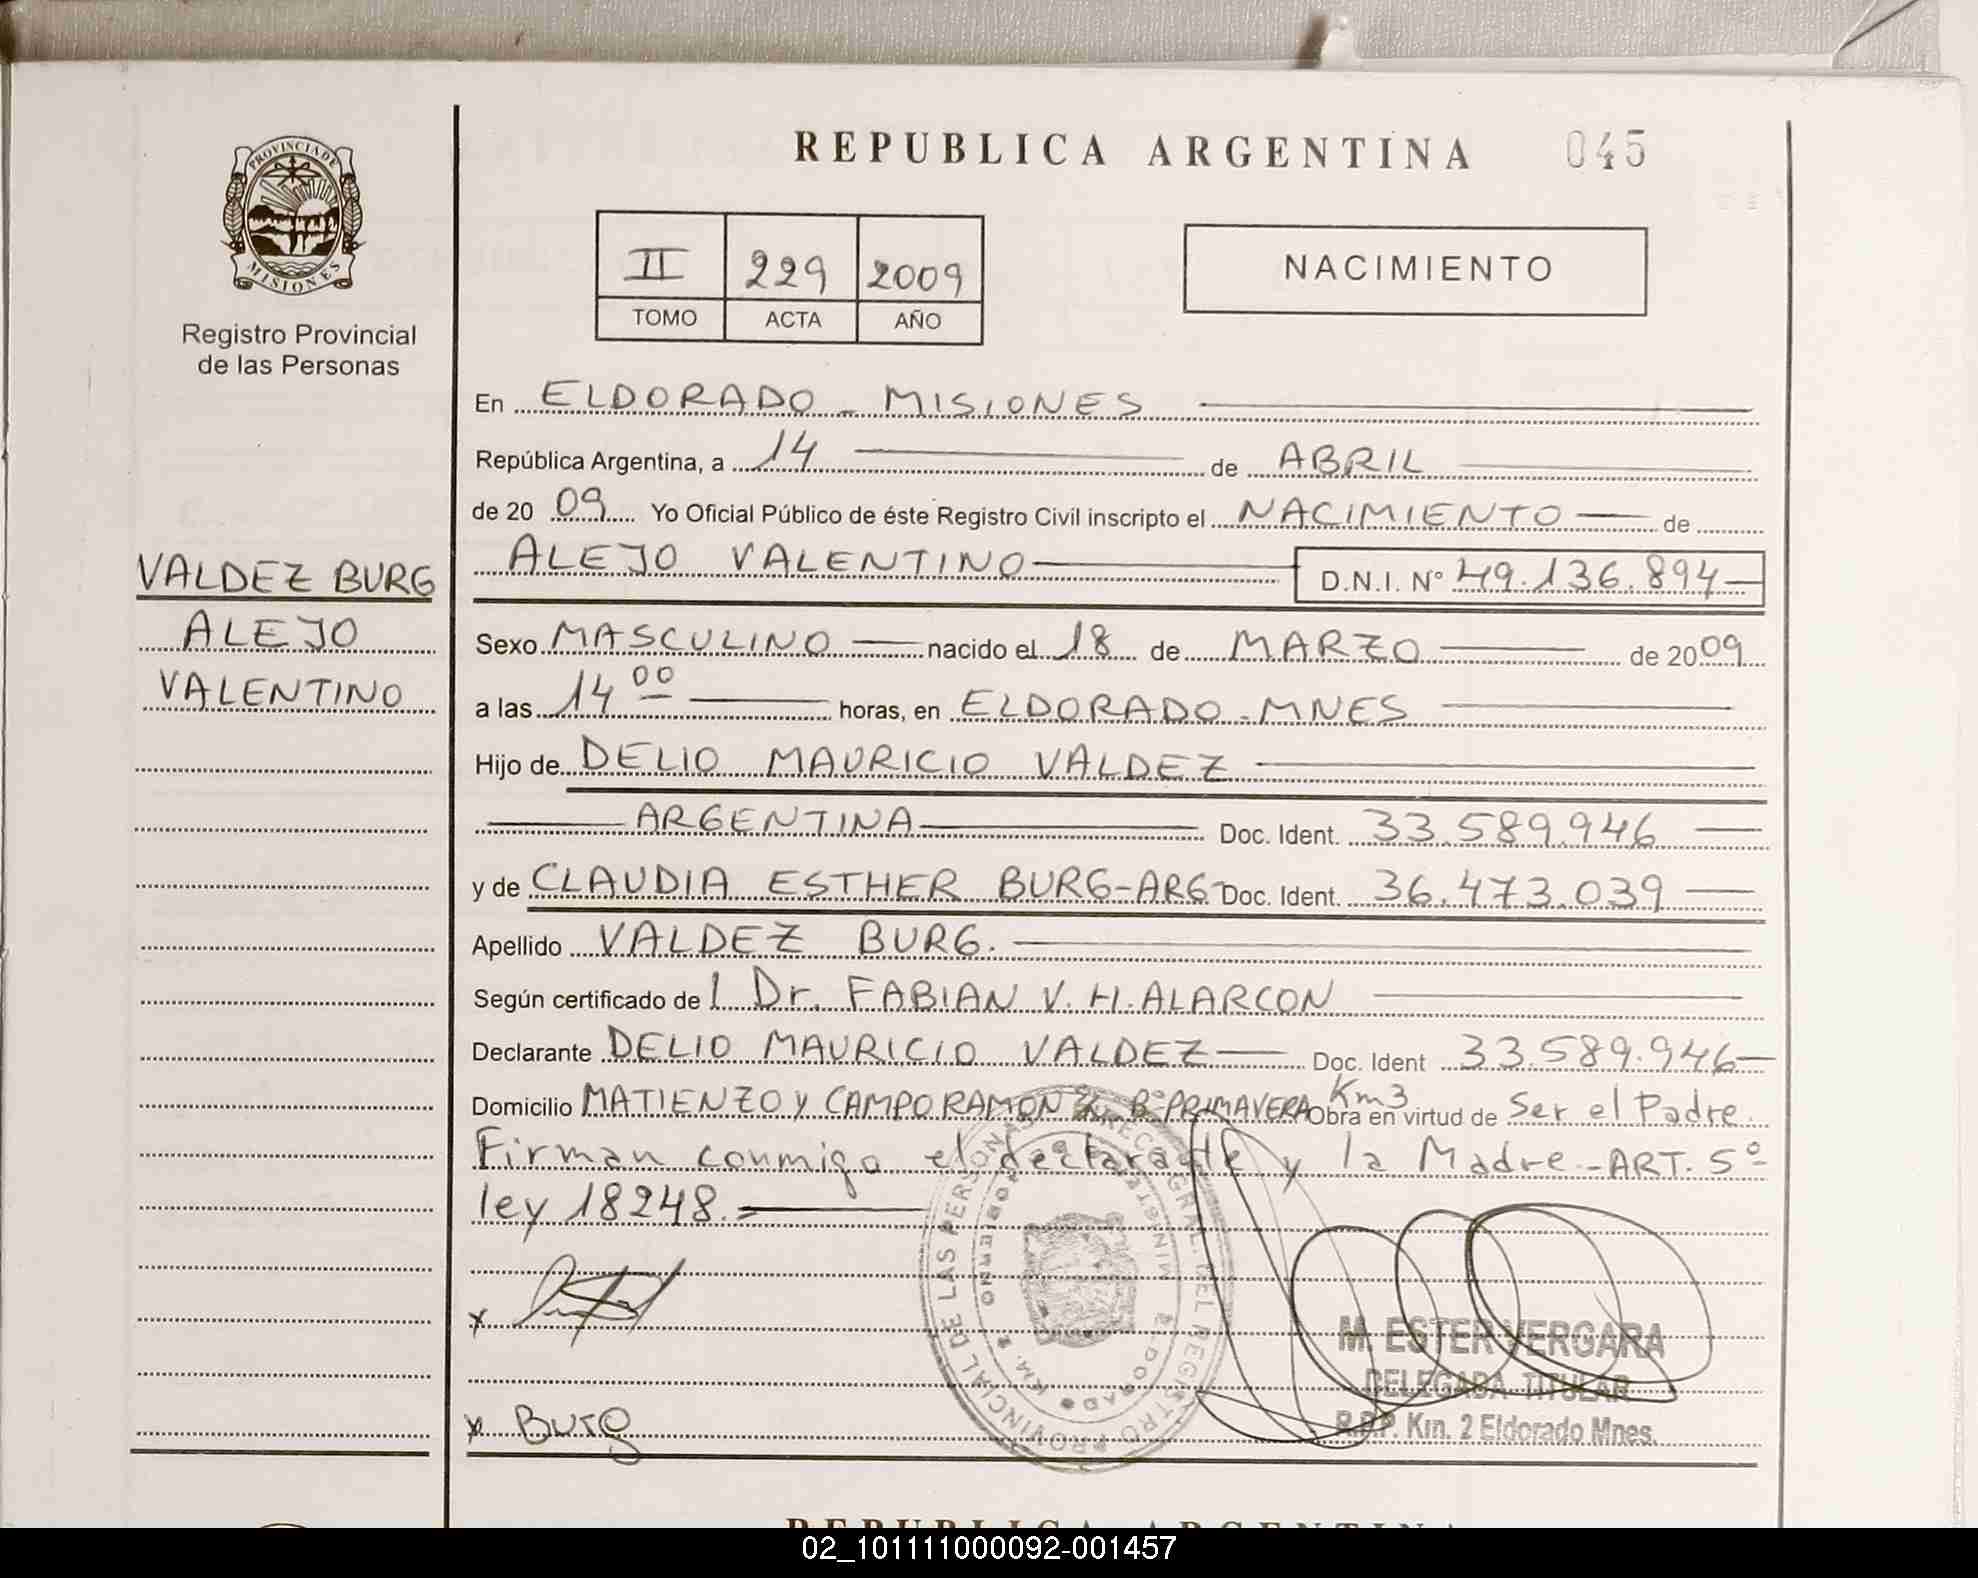 REPUBLICA ARGENTINA 045
PROVINCIA DE
MISIONES
Registro Provincial
de las Personas
II 229 2009
TOMO ACTA AÑO
NACIMIENTO
VALDEZ BURG
ALEJO
VALENTINO
En ELDORADO - MISIONES
República Argentina, a 14 de ABRIL
de 20 09 Yo Oficial Público de éste Registro Civil inscripto el NACIMIENTO de
ALEJO VALENTINO D.N.I. N° 49.136.894
Sexo MASCULINO nacido el 18 de MARZO de 20 09
a las 14 00 horas, en ELDORADO - MNES
Hijo de DELIO MAURICIO VALDEZ
ARGENTINA Doc. Ident. 33.589.946
y de CLAUDIA ESTHER BURG-ARG- Doc. Ident. 36.473.039
Apellido VALDEZ BURG.
Según certificado de l Dr. FABIAN V. H. ALARCON
Declarante DELIO MAURICIO VALDEZ Doc. Ident 33.589.946
Domicilio MATIENZO Y CAMPO RAMON B° PRIMAVERA Km3 Obra en virtud de Ser el Padre.
Firman conmigo el declarante y la Madre.- ART. 5°
ley 18248.=
x
x Burg
M. ESTER VERGARA
DELEGADA TITULAR
R.P.P. Km. 2 Eldorado Mnes.
REPUBLICA ARGENTINA
02_101111000092-001457